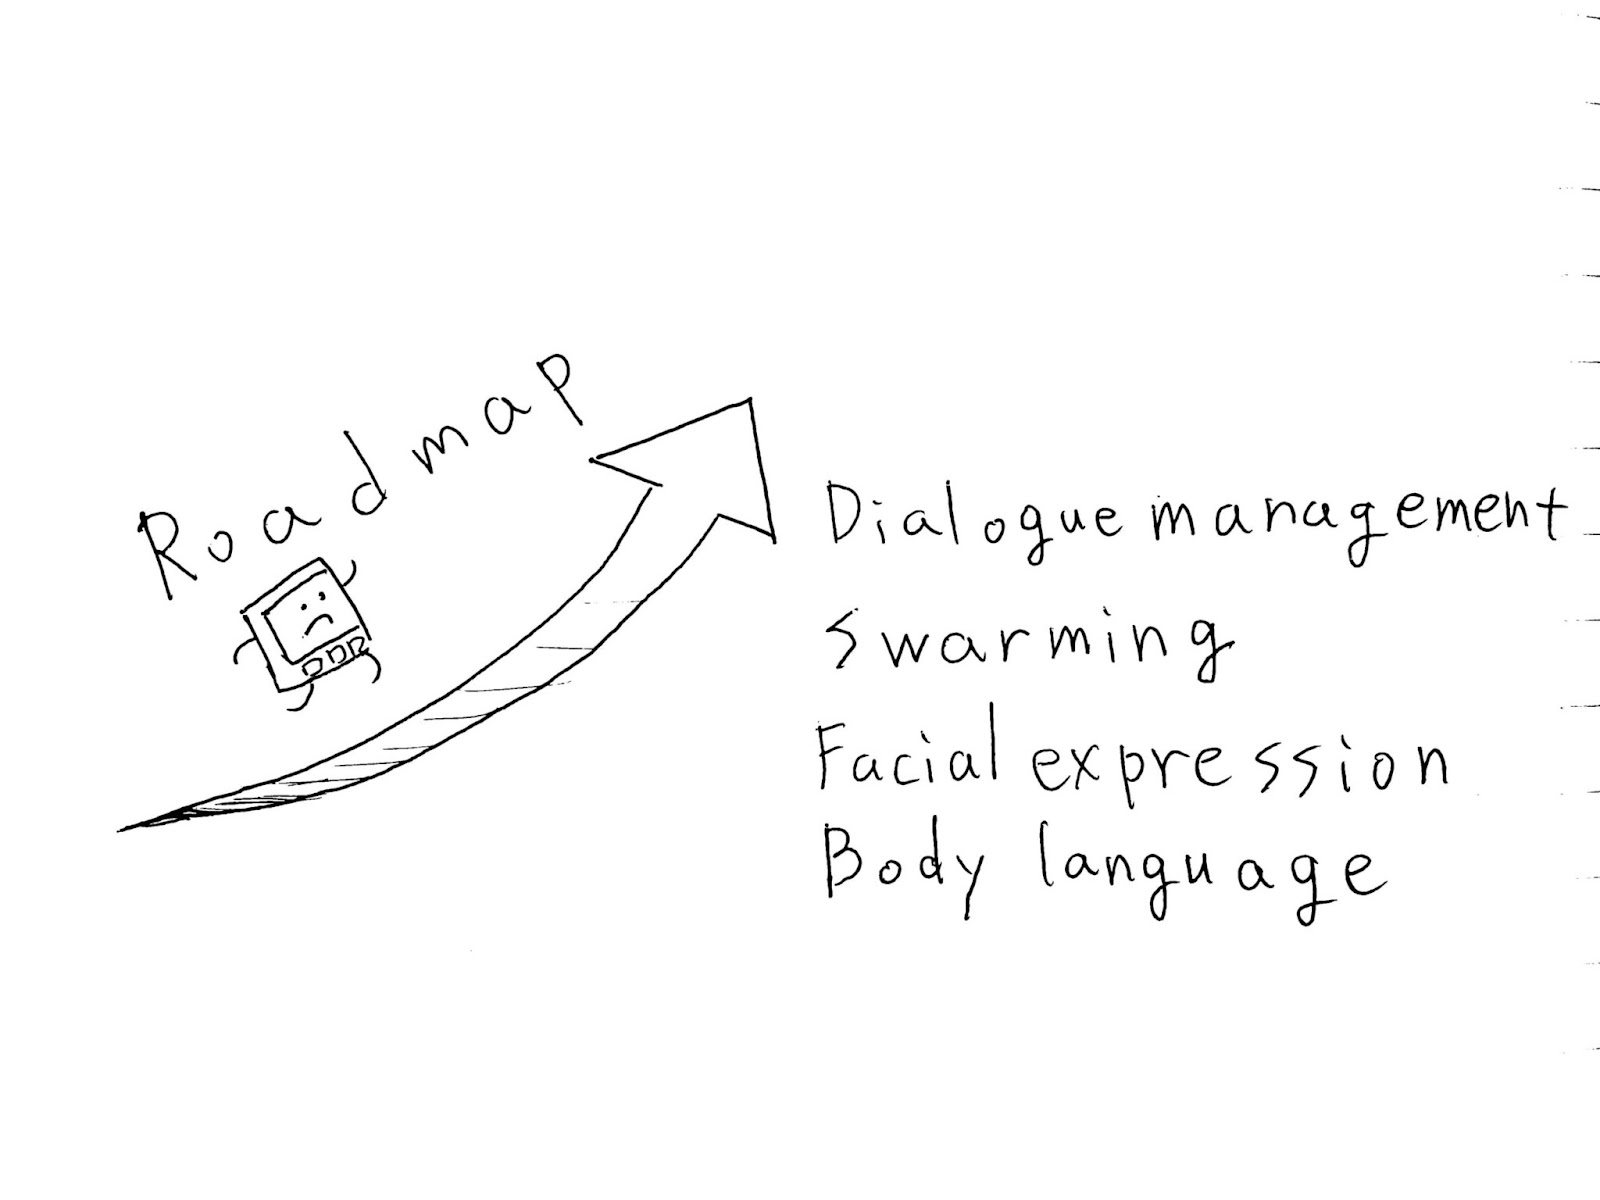 Roadmap
Dialogue management
Swarming
Facial expression
Body language